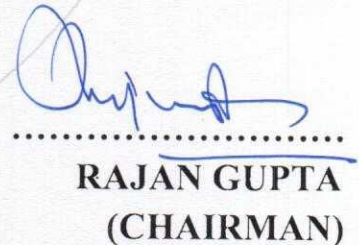 ........................................
RAJAN GUPTA
(CHAIRMAN)